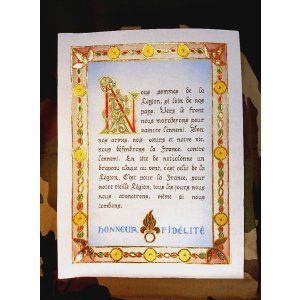 Nous sommes de la
Légion, et loin de nos
pays. Vers le front
nous marcherons pour
vaincre l'ennemi. Avec
nos armes, nos cœurs et notre vie,
nous défendrons la France, contre
l'ennemi. En tête de notre colonne un
drapeau claque au vent, c'est celui de la
Légion. C'est pour la France, pour
notre vieille Légion, tous les jours nous
nous avancerons, même si nous
tombons.
HONNEUR FIDÉLITÉ